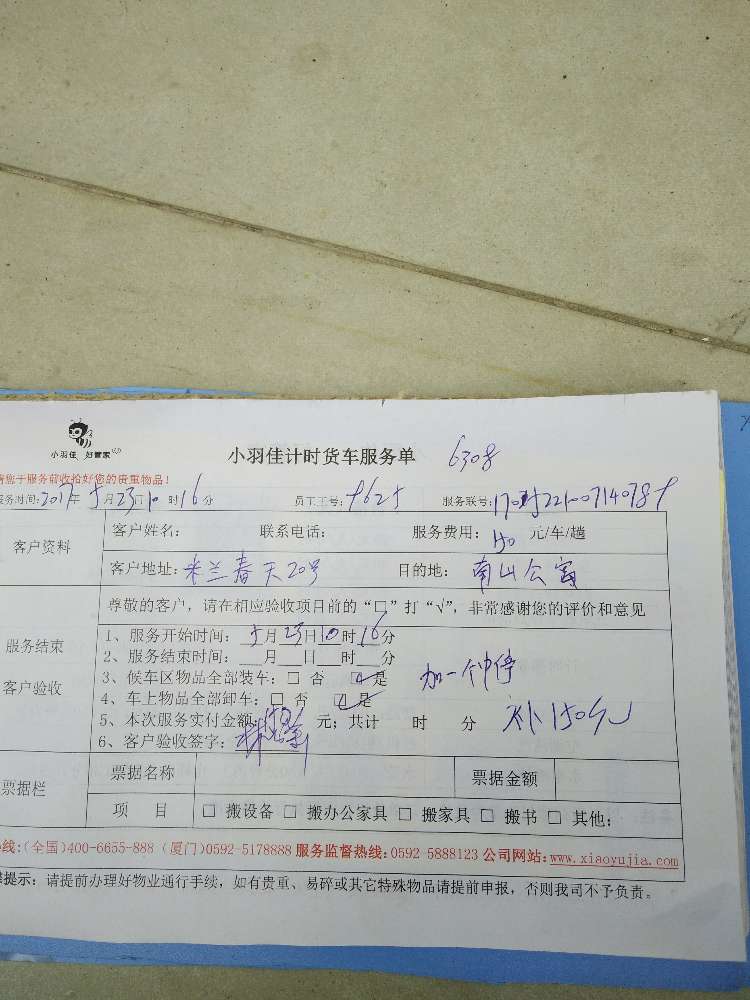 小羽佳 好管家
小羽佳计时货车服务单 630号
请您于服务前收拾好您的贵重物品!
服务时间:2017年5月23日10时16分 员工工号: 服务联号:
客户资料
客户姓名: 联系电话: 服务费用:150元/车/趟
客户地址:米兰春天20号 目的地:南山公寓
服务结束
客户验收
尊敬的客户,请在相应验收项目前的“□”打“√”,非常感谢您的评价和意见
1、服务开始时间:5月23日10时16分
2、服务结束时间:___月___日___时___分
3、候车区物品全部装车:□ 否 ☑ 是 加一个中停
4、车上物品全部卸车:□ 否 ☑ 是
5、本次服务实付金额: 元;共计 时 分 补150元
6、客户验收签字:
票据栏
票据名称 票据金额
项 目 □ 搬设备 □ 搬办公家具 □ 搬家具 □ 搬书 □ 其他:
线:(全国)400-6655-888 (厦门)0592-5178888 服务监督热线:0592-5888123 公司网站:www.xiaoyujia.com
提示:请提前办理好物业通行手续,如有贵重、易碎或其它特殊物品请提前申报,否则我司不予负责。